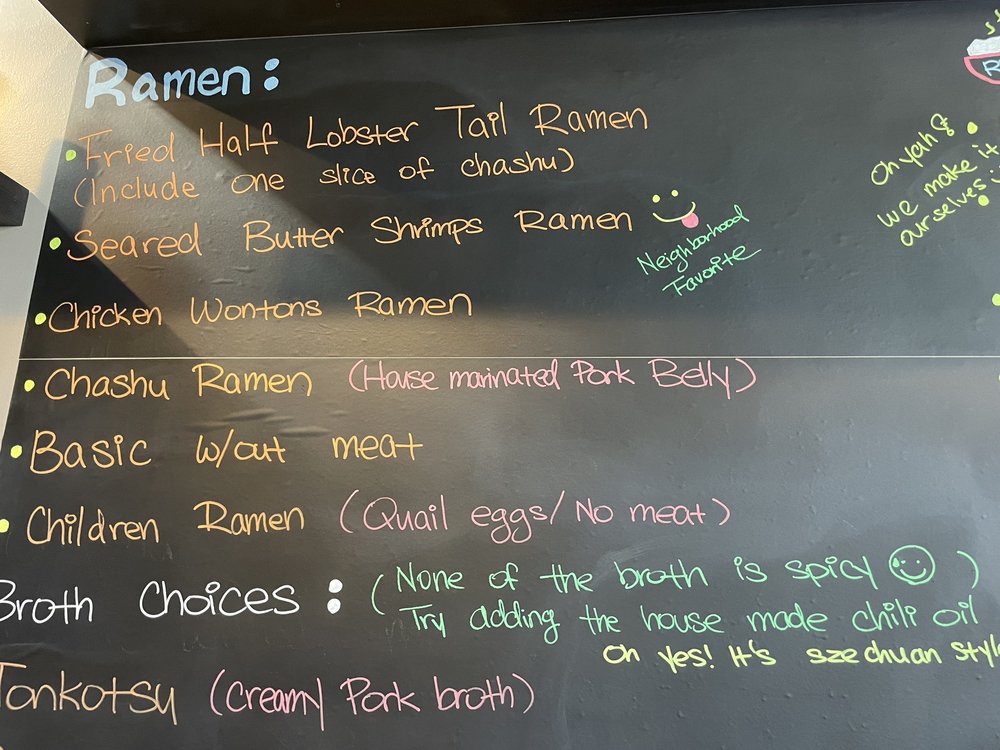 Ramen:
• Fried Half Lobster Tail Ramen
(Include one slice of chashu)
• Seared Butter Shrimps Ramen
Neighborhood
Favorite
• Chicken Wontons Ramen
• Chashu Ramen (House marinated Pork Belly)
• Basic w/out meat
• Children Ramen (Quail eggs/No meat)
Broth Choices: (None of the broth is spicy )
Try adding the house made chili oil
Oh yes! It's szechuan style
Tonkotsu (Creamy Pork broth)
Oh yah!
we make it
ourselves